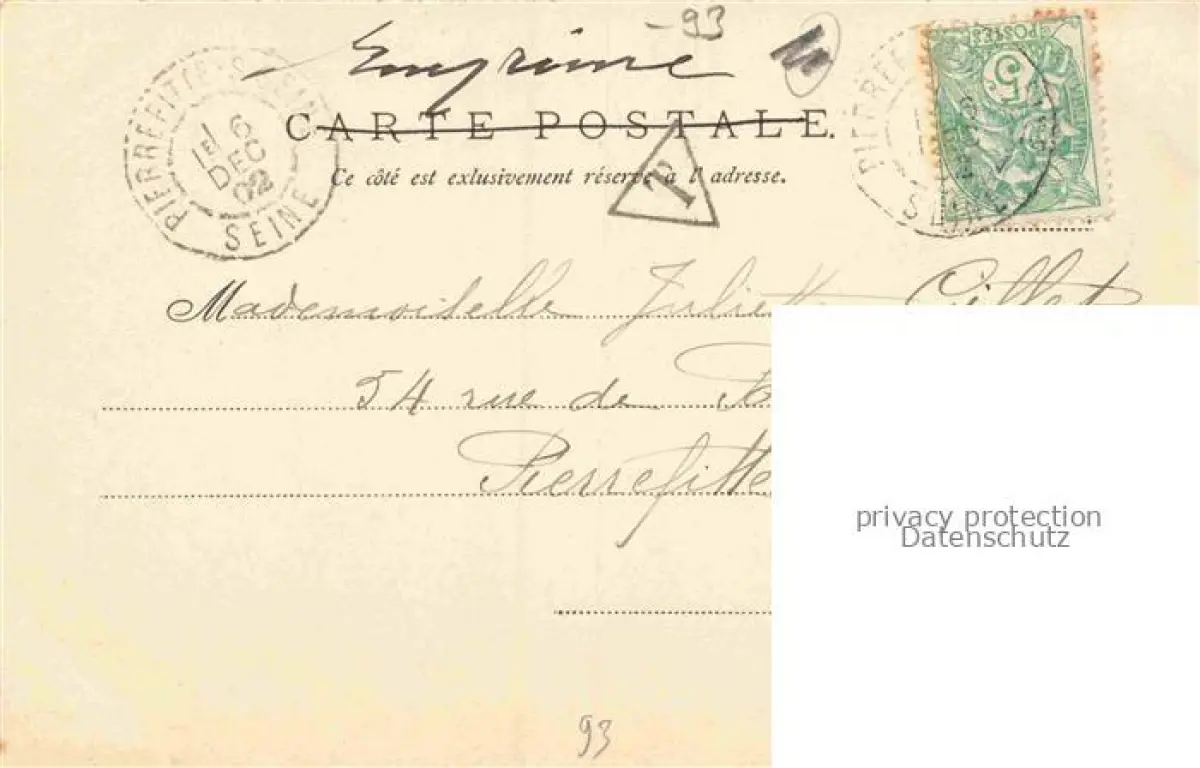 -93
Imprimé
CARTE POSTALE.
Ce côté est exlusivement réservé à l'adresse.
PIERREFITTE-S-SEINE
1E 6
DEC
02
SEINE
T
POSTES
5
PIERREF
SEINE
Mademoiselle Juliette Gillet
54 rue de
Pierrefitte
93
privacy protection
Datenschutz